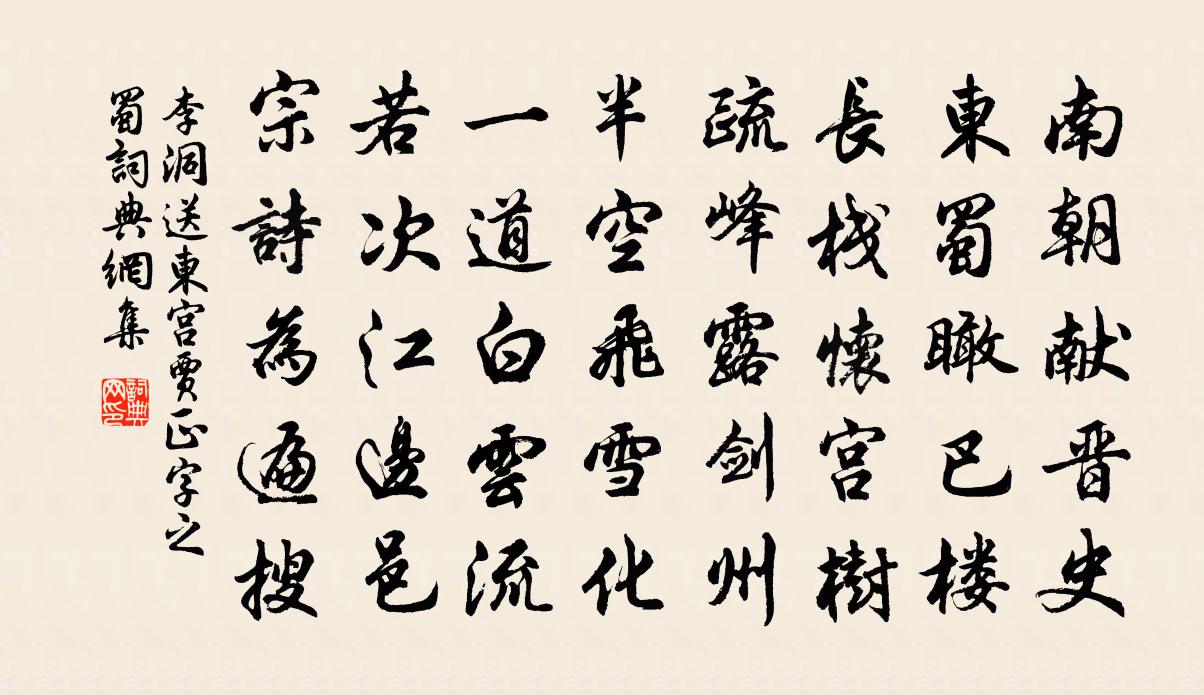 南朝献晋史
東蜀瞰巴楼
長棧懷宫樹
疏峰露劍州
半空飛雪化
一道白雲流
若次江邊邑
宗詩為遍搜
李洞送東宫賈正字之
蜀詞典網集
詞典
网印